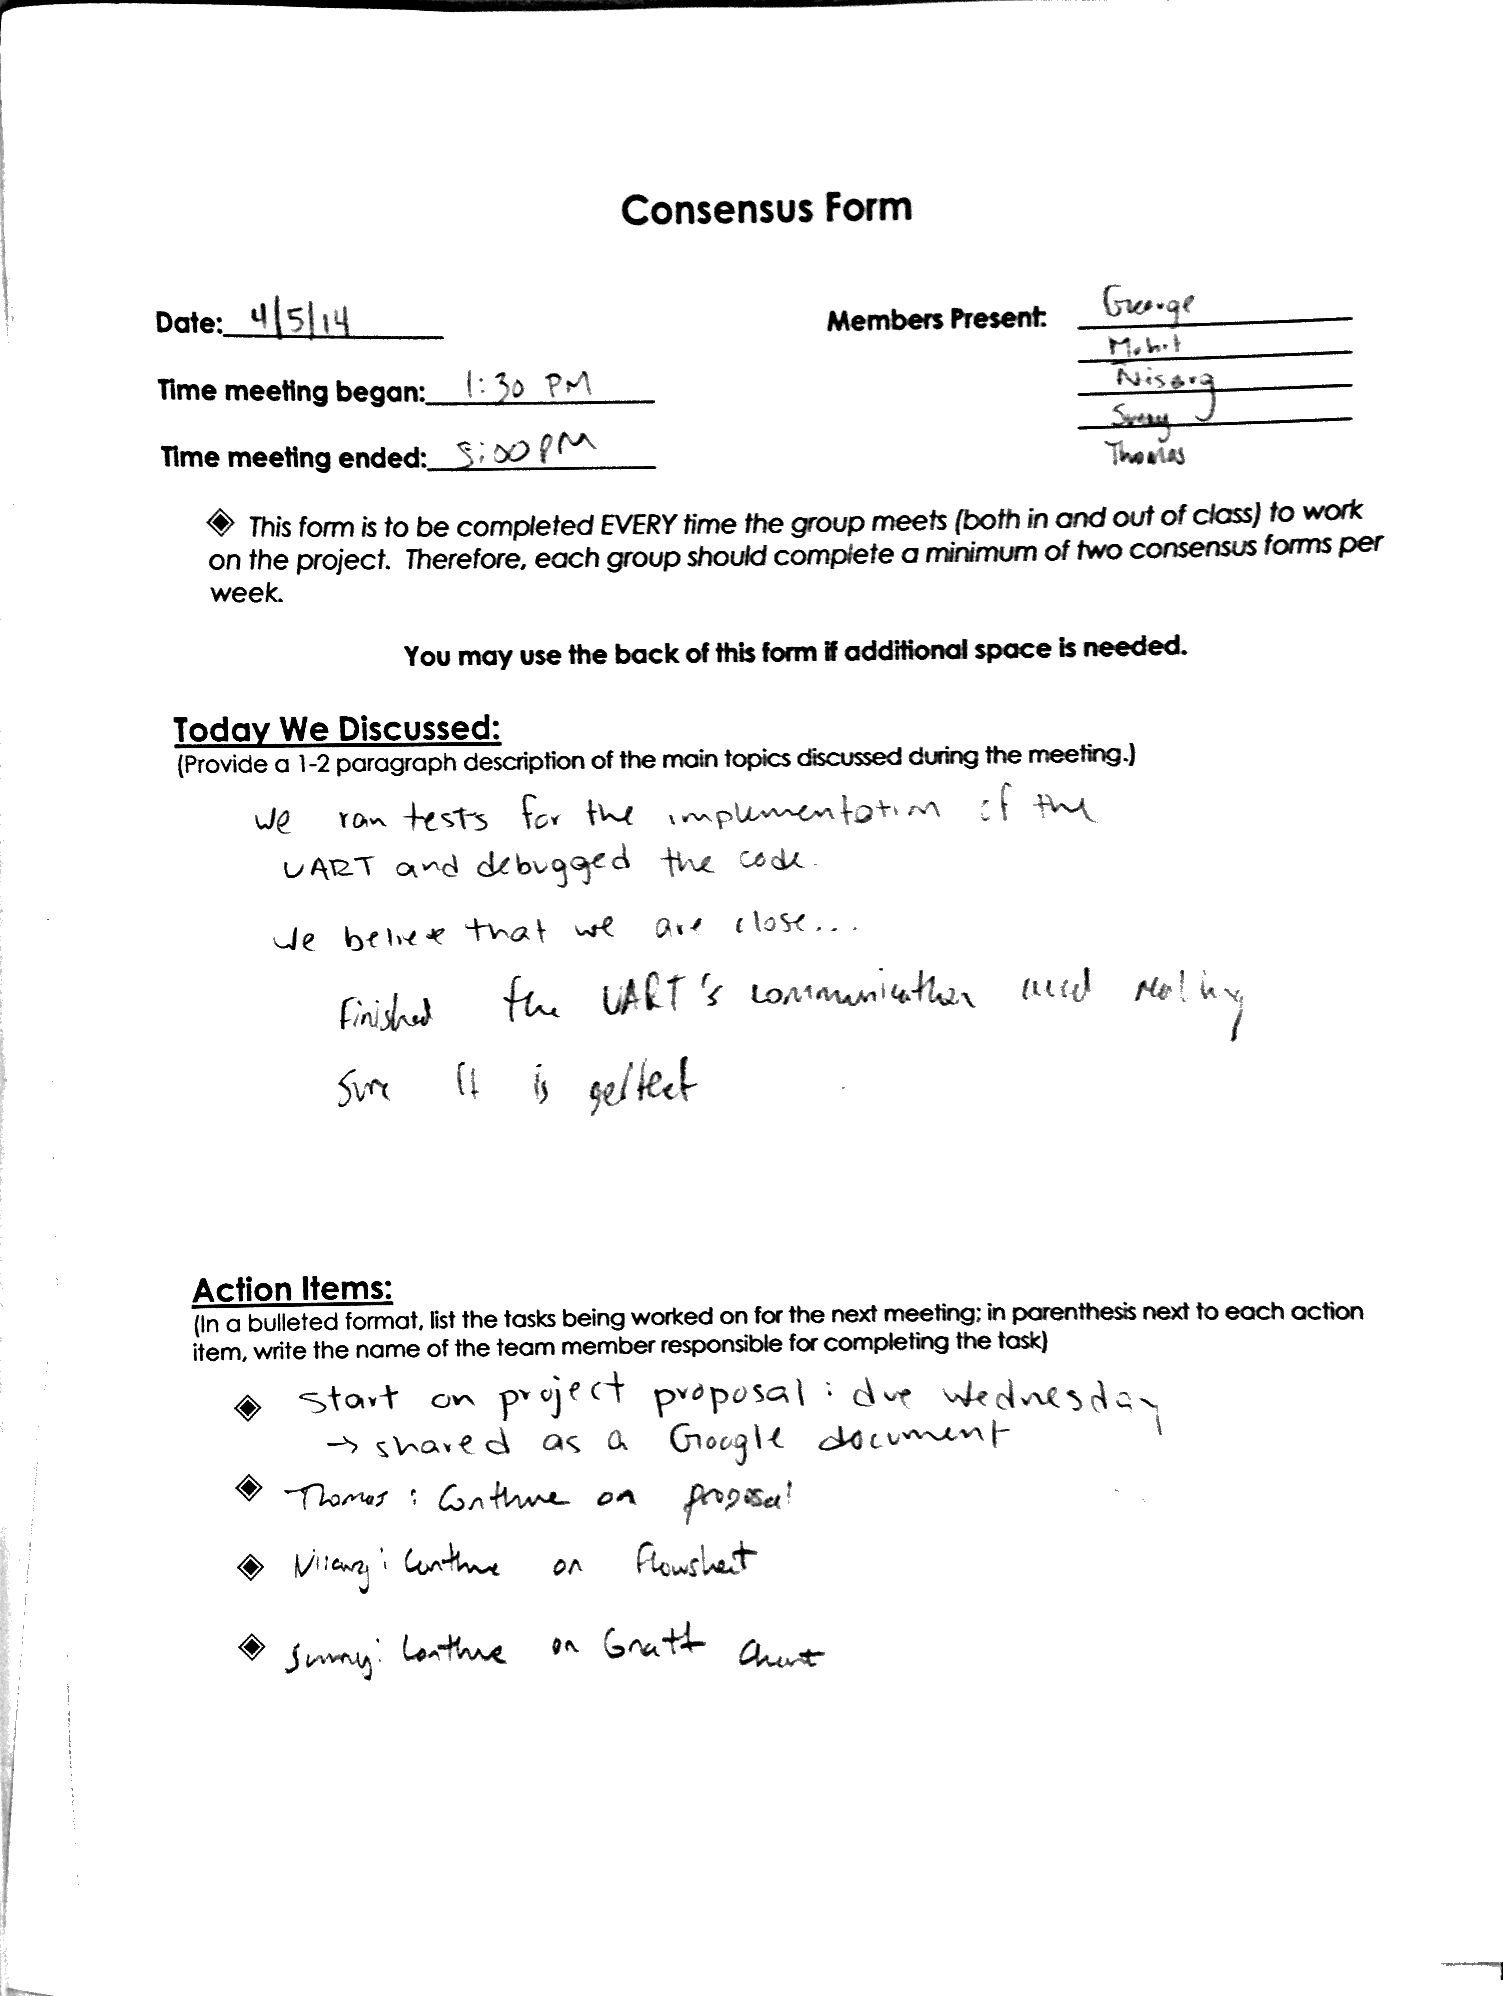 Consensus Form
Date: 4/5/14
Members Present:
George
Mohit
Nisarg
Sunny
Thomas
Time meeting began: 1:30 PM
Time meeting ended: 5:00 PM
This form is to be completed EVERY time the group meets (both in and out of class) to work
on the project. Therefore, each group should complete a minimum of two consensus forms per
week.
You may use the back of this form if additional space is needed.
Today We Discussed:
(Provide a 1-2 paragraph description of the main topics discussed during the meeting.)
We ran tests for the implementation of the
UART and debugged the code.
We believe that we are close...
Finished the UART's communication and making
sure it is perfect
Action Items:
(In a bulleted format, list the tasks being worked on for the next meeting; in parenthesis next to each action
item, write the name of the team member responsible for completing the task)
Start on project proposal : due Wednesday
→ shared as a Google document
Thomas : Continue on proposal
Nisarg : Continue on Flowsheet
Sunny : Continue on Gnatt Chart